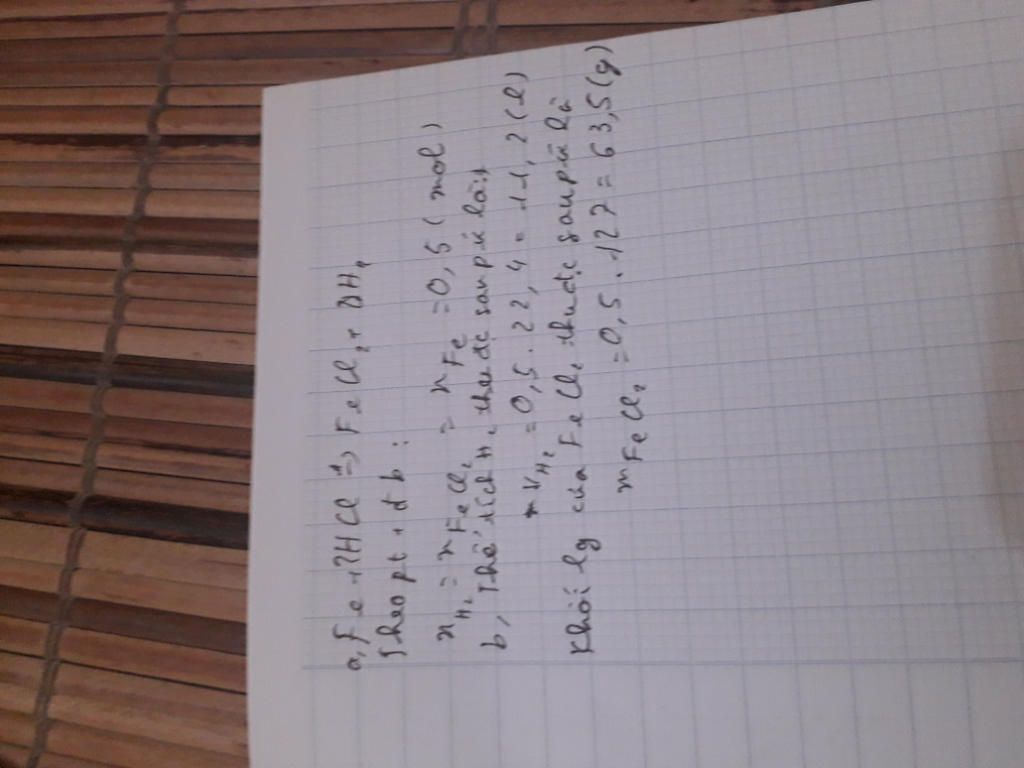 a, Fe + 2HCl → FeCl₂ + H₂
Theo pt + đb :
n H₂ = n FeCl₂ = n Fe = 0,5 ( mol )
b, Thể tích H₂ thu đc sau pứ là :
V H₂ = 0,5 . 22,4 = 11,2 (l)
Khối lg của FeCl₂ thu đc sau pứ là
m FeCl₂ = 0,5 . 127 = 63,5 (g)